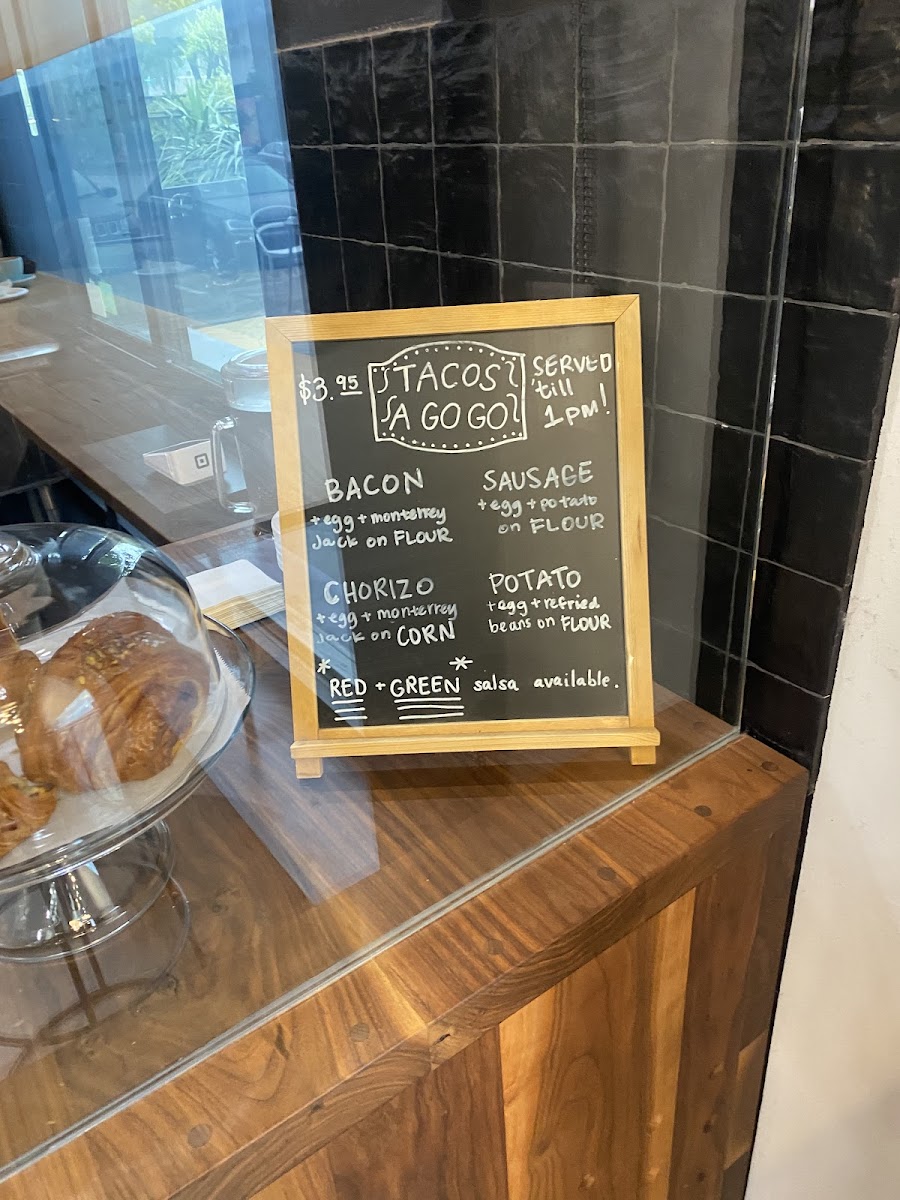 $3.95
TACOS
A GO GO
SERVED
'till
1pm!
BACON
+egg+monterrey
Jack on FLOUR
SAUSAGE
+egg+potato
on FLOUR
CHORIZO
+egg+monterrey
Jack on CORN
POTATO
+egg+refried
beans on FLOUR
*RED + GREEN* salsa available.